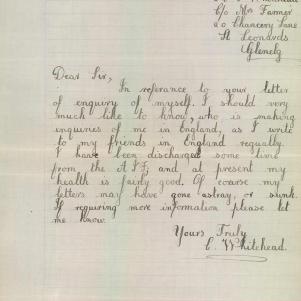 C/o Mrs Farmer
20 Chancery Lane
St Leonards
Glenelg
Dear Sir,
In referance to your letter
of enquiry of myself. I should very
much like to know, who is making
enquiries of me in England, as I write
to my friends in England regually.
I have been discharged some time
from the A.I.F. and at present my
health is fairly good. Of coarse my
letters may have gone astray, or sunk.
If requiring more information please let
me know.
Yours Truly
C. Whitehead.